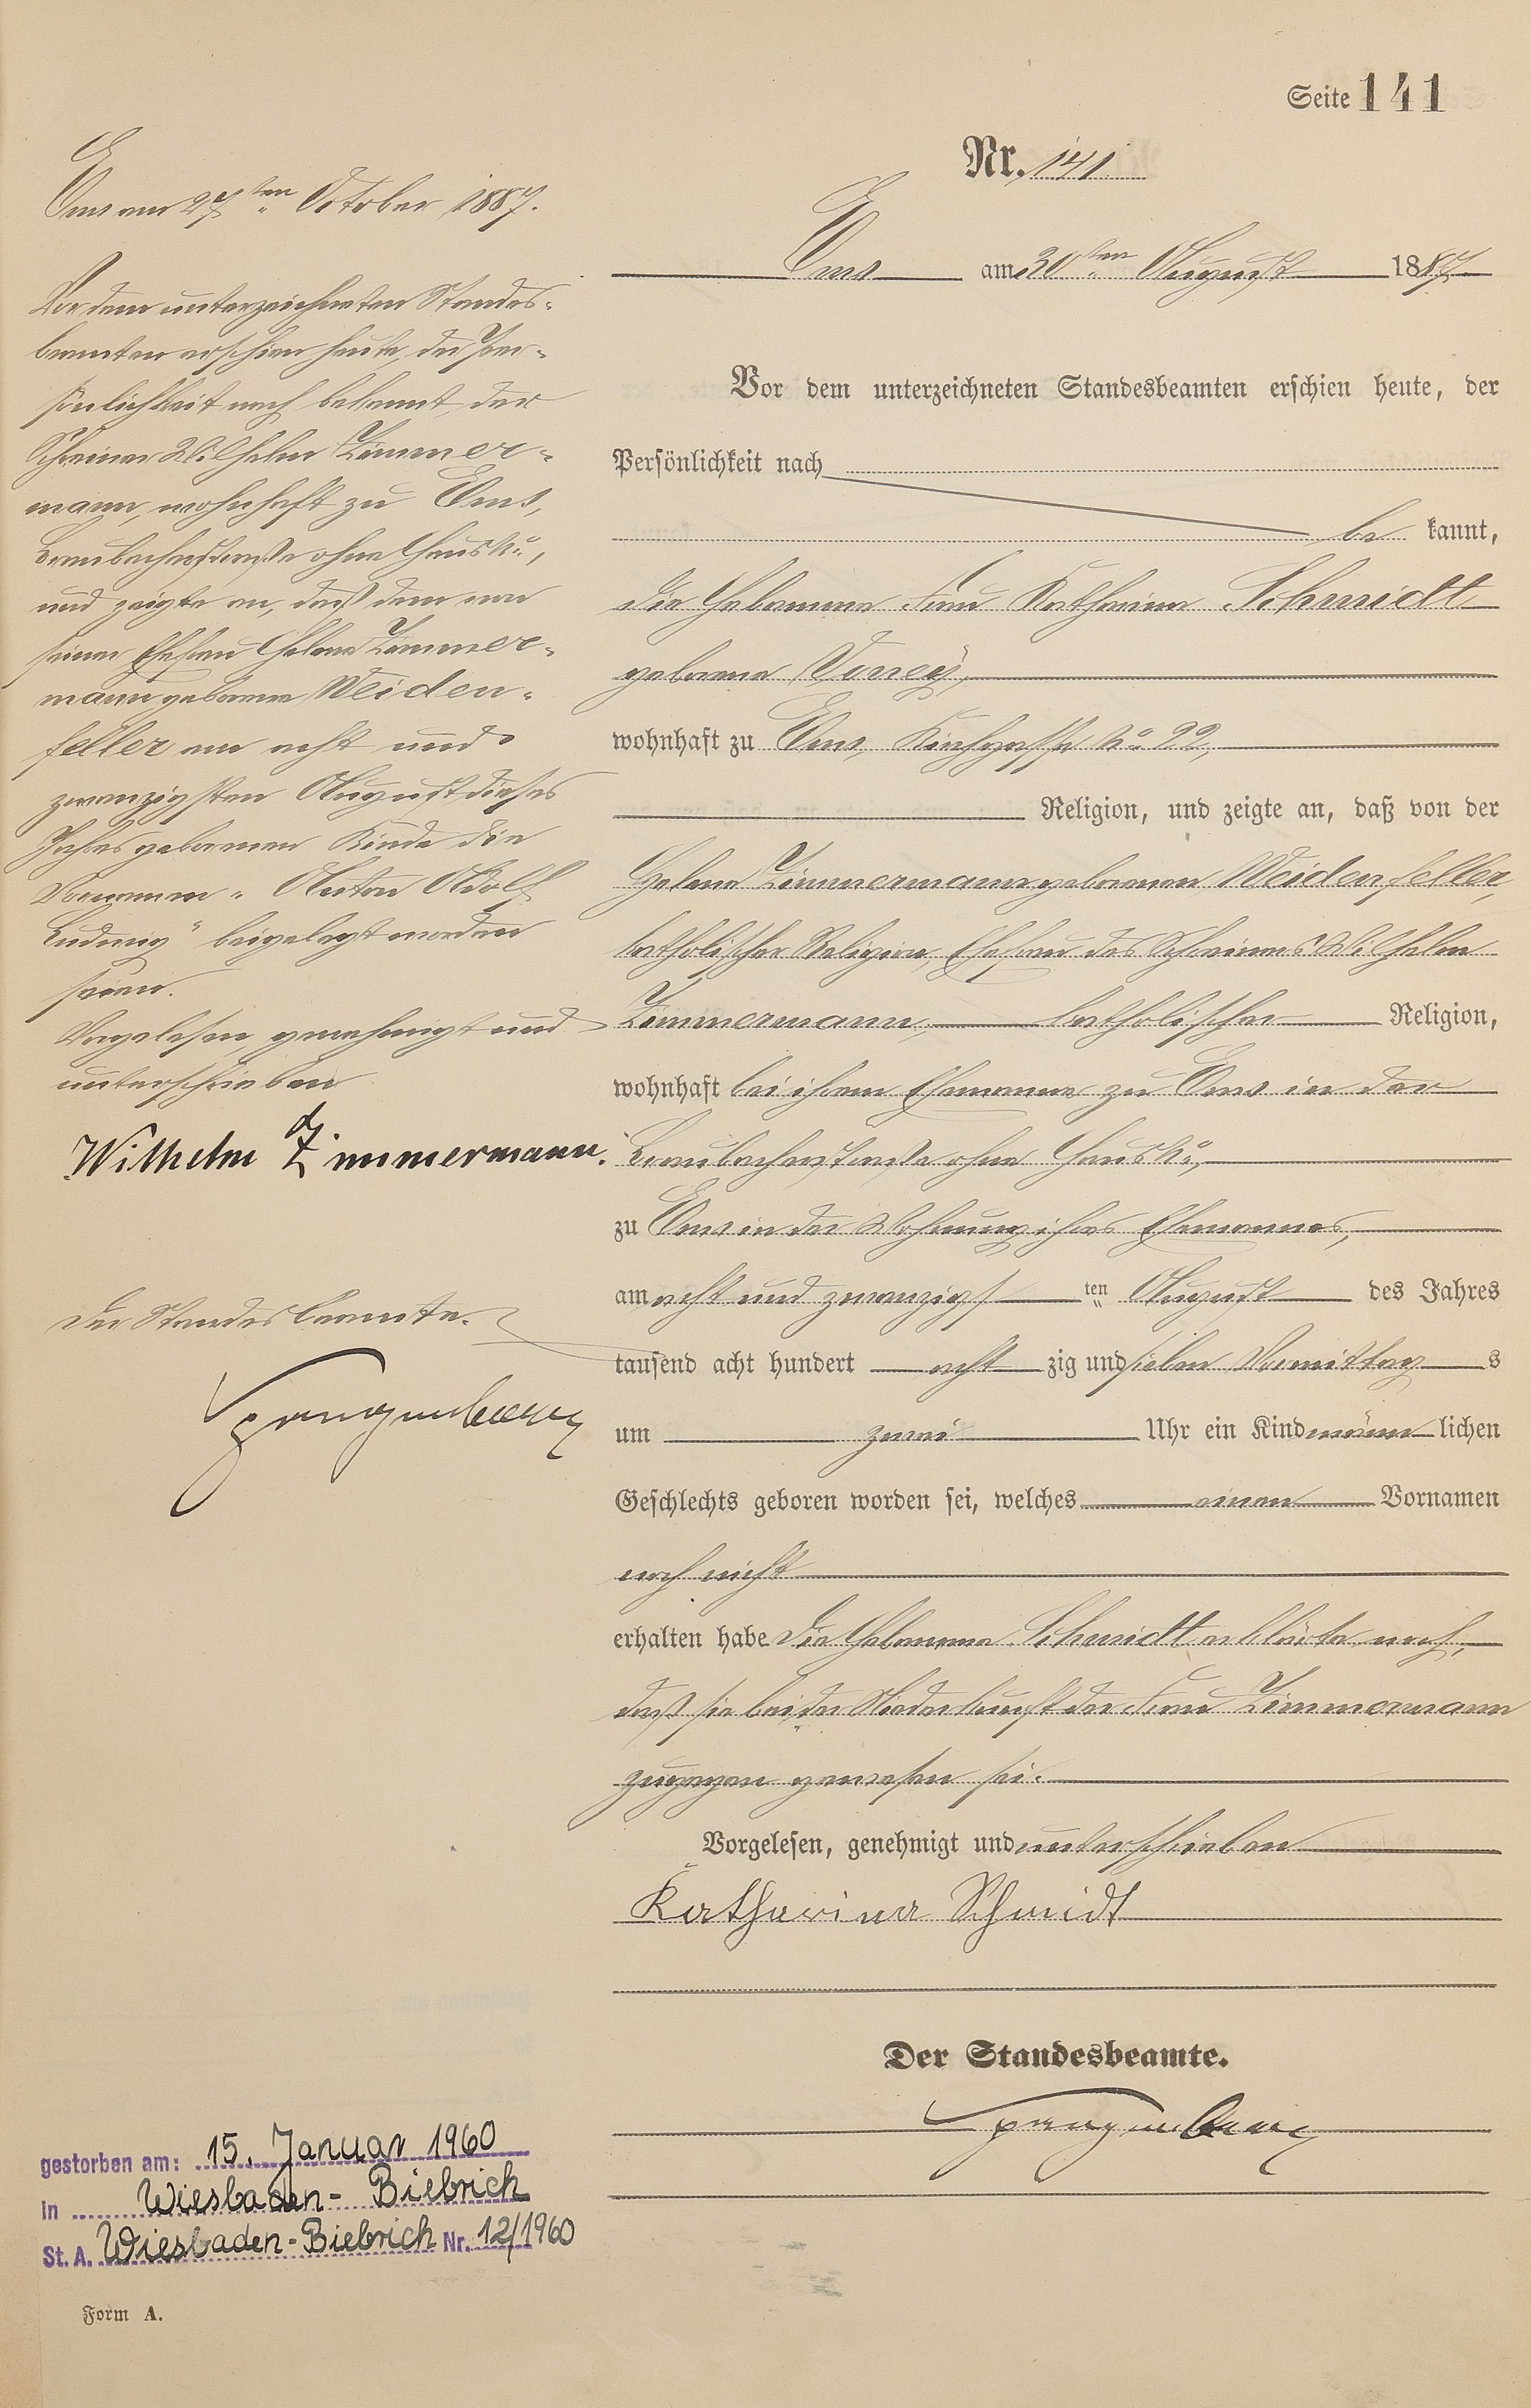 Seite 141
Nr. 141.
Ems am 30ten August 1887.
Vor dem unterzeichneten Standesbeamten erschien heute, der
Persönlichkeit nach
be kannt,
die Hebamme Frau Katharina Schmidt
geborene
wohnhaft zu Ems, Kirchgasse No 22,
Religion, und zeigte an, daß von der
Helena Zimmermann geborenen Weidenfeller,
katholischer Religion, Ehefrau des Schreiners Wilhelm
Zimmermann, katholischer Religion,
wohnhaft bei ihrem Ehemanne zu Ems in der
Braubacherstraße ohne Haus No,
zu Ems in der Wohnung ihres Ehemannes,
am acht und zwanzigsten August des Jahres
tausend acht hundert acht zig und sieben Vormittags
um zwei Uhr ein Kind männlichen
Geschlechts geboren worden sei, welches einen Vornamen
noch nicht
erhalten habe Die Hebamme Schmidt erklärte noch,
daß sie bei der Niederkunft der Frau Zimmermann
zugegen gewesen sei.
Vorgelesen, genehmigt und unterschrieben
Katharina Schmidt
Der Standesbeamte.
Spangenberg
Ems am 27ten October 1887.
Vor dem unterzeichneten Standes-
beamten erschien heute, der Per-
sönlichkeit nach bekannt, der
Schreiner Wilhelm Zimmer-
mann, wohnhaft zu Ems,
Braubacherstraße ohne Haus No,
und zeigte an, daß dem von
seiner Ehefrau Helena Zimmer-
mann geborene Weiden-
feller am acht und
zwanzigsten August dieses
Jahres geborenen Kinde die
Vornamen „Anton Adolf
Ludwig" beigelegt worden
seien.
Vorgelesen, genehmigt und
unterschrieben
Wilhelm Zimmermann.
Der Standesbeamte.
Spangenberg
gestorben am: 15. Januar 1960
in Wiesbaden-Biebrich
St. A. Wiesbaden-Biebrich Nr. 12/1960
Form A.